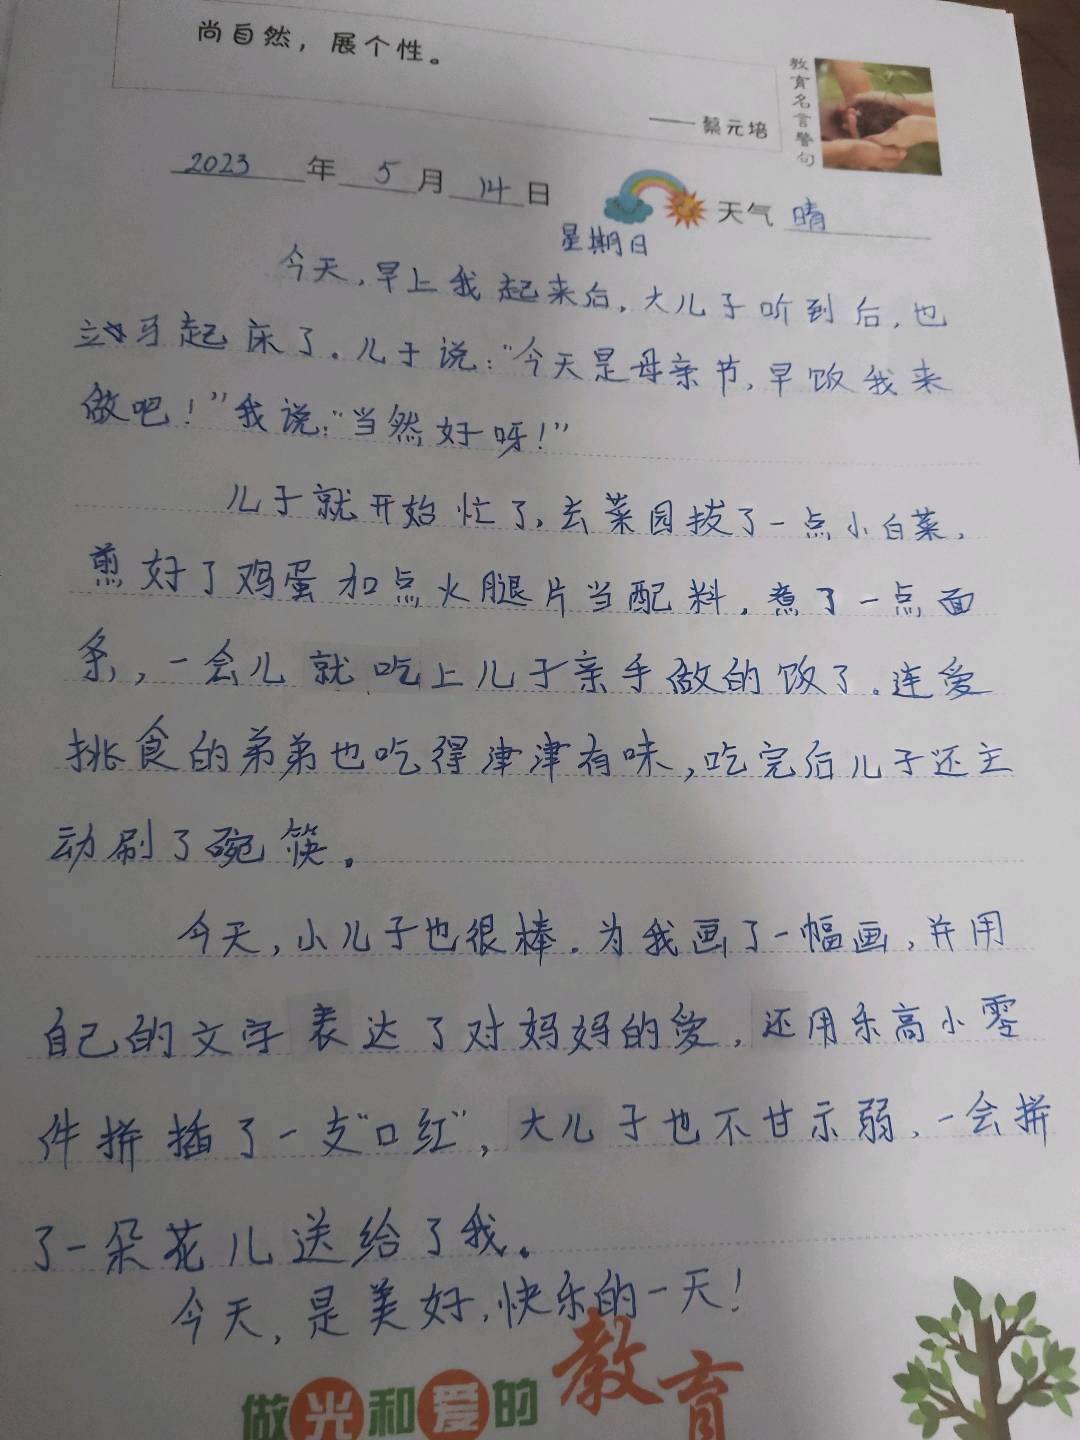 尚自然，展个性。
——蔡元培
教育名言警句
2023年5月14日
天气 晴
星期日
今天,早上我起来后,大儿子听到后,也
起床了。儿子说:"今天是母亲节,早饭我来
做吧!"我说:"当然好呀!"
儿子就开始忙了,去菜园拔了一点小白菜,
煎好了鸡蛋加点火腿片当配料,煮了一点面
条,一会儿就吃上儿子亲手做的饭了。连爱
挑食的弟弟也吃得津津有味,吃完后儿子还主
动刷了碗筷。
今天,小儿子也很棒。为我画了一幅画,并用
自己的文字表达了对妈妈的爱,还用乐高小零
件拼插了一支"口红",大儿子也不甘示弱,一会拼
了一朵花儿送给了我。
今天,是美好,快乐的一天!
做光和爱的教育